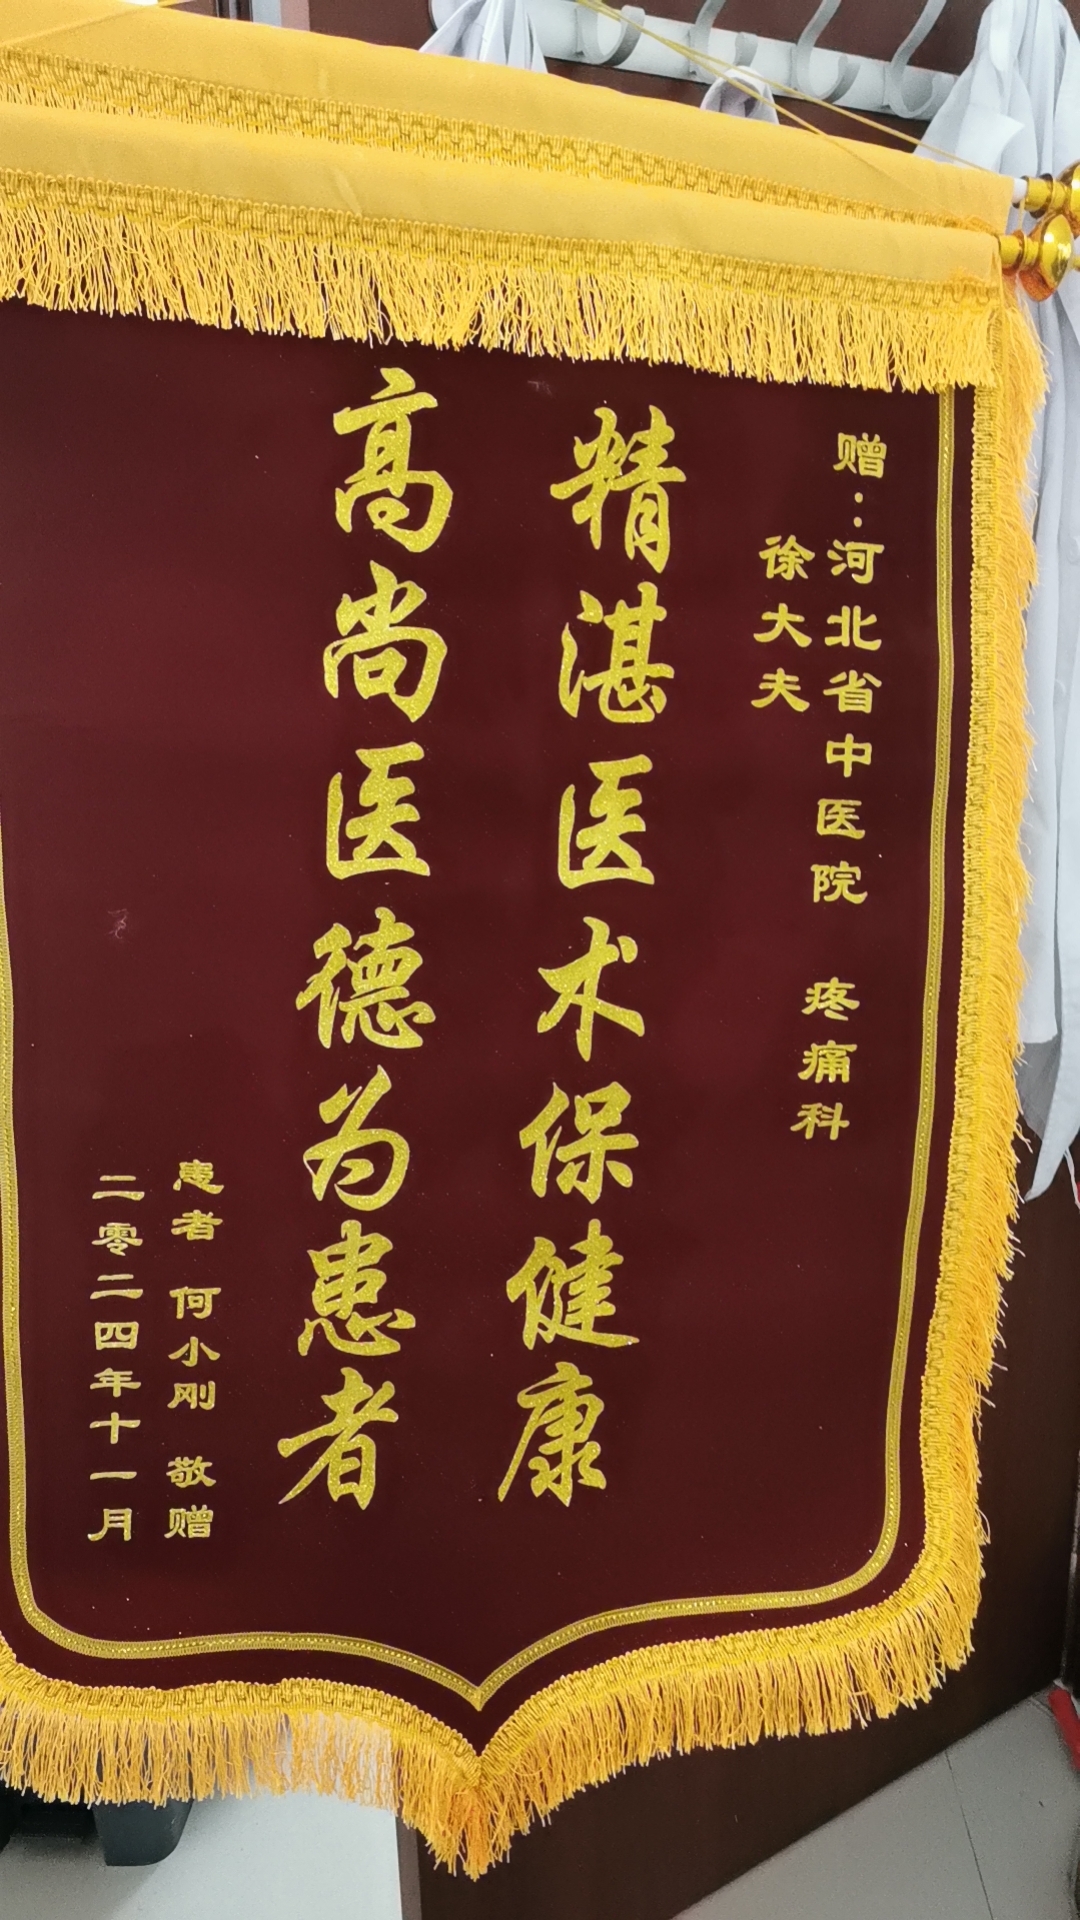 赠：河北省中医院 疼痛科
徐大夫
精湛医术保健康
高尚医德为患者
患者 何小刚 敬赠
二零二四年十一月